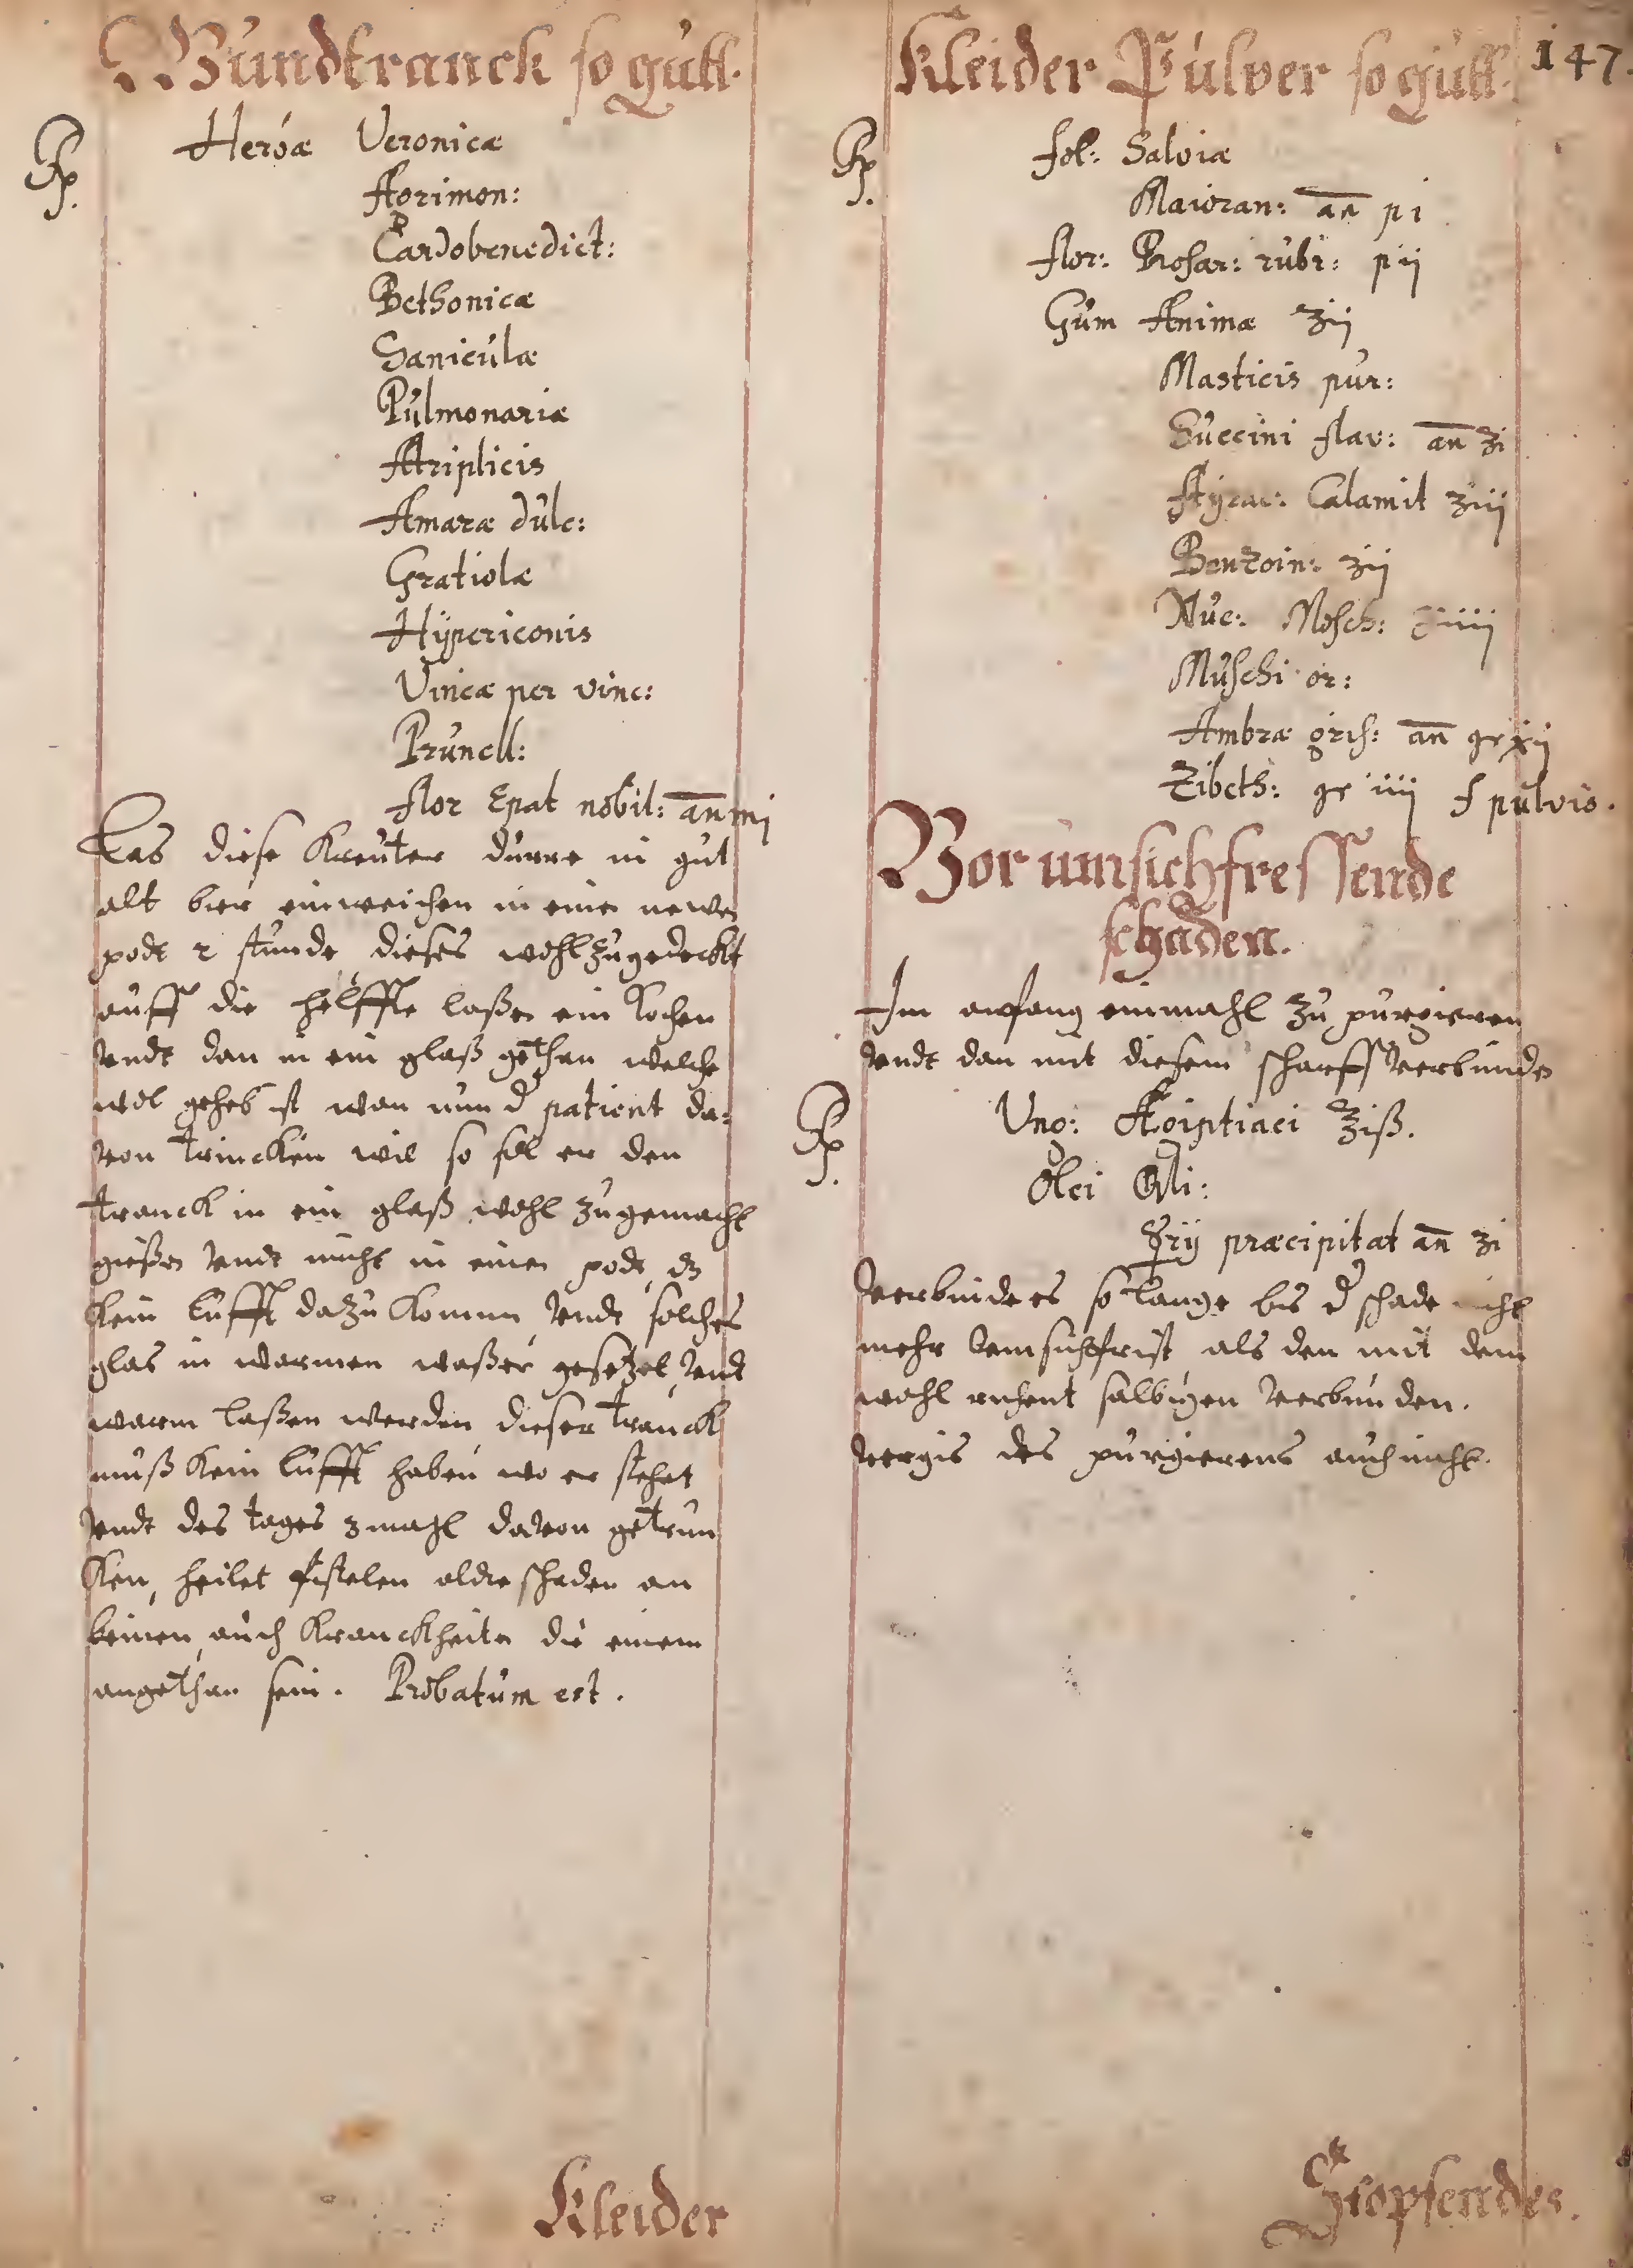 Wundtranck so gutt.
℞. Herbæ Veronicæ
Agrimon:
Cardobenedict:
Bethonicæ
Saniculæ
Pulmonariæ
Atriplicis
Amaræ dulc:
Gratiolæ
Hÿpericonis
Vincæ per vinc:
Prunell:
flor Epat nobil: an̅ mj
Las diese Kreuter durre in gut
alt bier einweichen in einen newen
podt 2 stunde, dieses wohl zugedeckt
auff die helffte laßen ein kochen
vndt dan in ein glaß gethan welche
wol geheb ist wan nun d patient da-
von trincken wil so sol er den
tranck in ein glaß wohl zugemacht
gießen vndt nicht in einen podt, dz
kein lufft dazu komme, vndt solches
glas in warmen waßer gesetzet, vndt
warm laßen werden dieser tranck
muß kein lufft haben wo er stehet
vndt des tages 3 mahl davon getrun
ken, heilet fistelen alde schaden an
beinen, auch Kranckheiten die einem
angethan sein. Probatum est.
Kleider
Kleider Pulver so gutt. 147.
℞. fol: Salviæ
Maioran: an̅ p i
flor: Rosar: rubr: p ij
Gum Animæ ʒij
Masticis pur:
Succini flav: an̅ ʒi
Styrac: Calamit ʒiij
Benzoin: ʒij
Nuc: Mosch: ʒiiij
Muschi or:
Ambræ gris: an̅ gr xij
Zibeth: gr iiij f pulvis.
Vor umsichfressende
schaden.
Im anfang einmahl zu purgieren
vndt dan mit diesem scharff verbunden
℞. Ung: Ægiptiaci ℥iß.
Olei Oli:
☿rij præcipitat an̅ ʒi
verbinde es so lange bis d schade nicht
mehr vmsichfrist als den mit dem
wohl salbigen verbunden.
vergis des purgierens auch nicht.